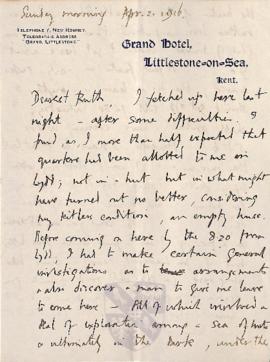 Sunday morning Apr. 2. 1916.
TELEPHONE 7, NEW ROMNEY.
TELEGRAPHIC ADDRESS
"GRAND, LITTLESTONE"
Grand Hotel,
Littlestone-on-Sea,
Kent.
Dearest Ruth I fetched up here last
night – after some difficulties. I
find, as I more than half expected that
quarters had been allotted to me in
Lydd; not in a hut but in what might
have turned out no better, considering
my kitless condition, an empty house.
Before coming on here by the 8.20 from
Lydd, I had to make certain general
investigations as to arrangements
& also discover a man to give me leave
to come here. All of which involved a
deal of exploration among a sea of huts
& ultimately in the dark, under the